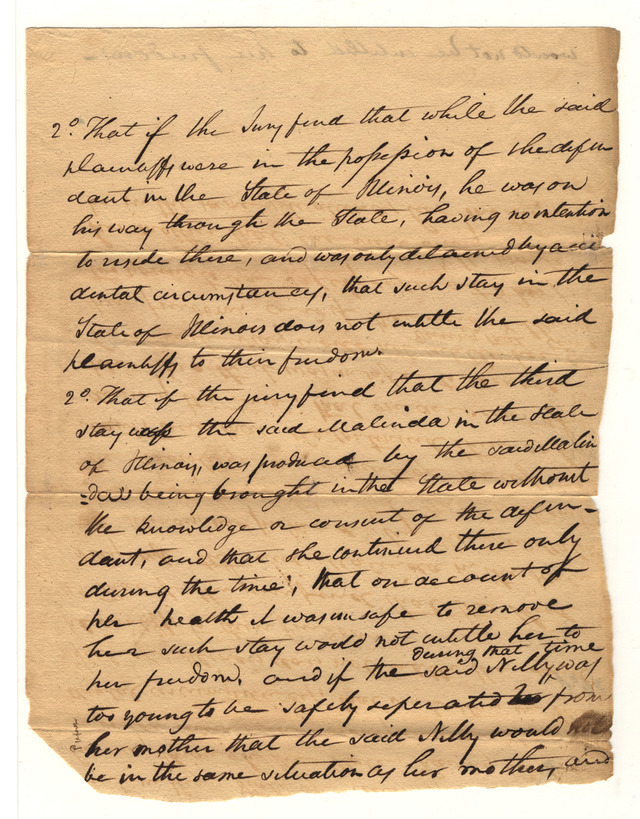 2º. That if the Jury find that while the said
plaintiffs were in the possession of the defen
dant in the State of Illinois, he was on
his way through the State, having no intention
to reside there, and was only detained by acci
dental circumstances, that such stay in the
State of Illinois does not intitle the said
plaintiffs to their freedom.
2º. That if the jury find that the third
stay the said Malinda in the State
of Illinois, was produced by the said Malin
-da's being brought in the State without
the knowledge or consent of the defen-
dant, and that she continued there only
during the time, that on account of
her health it was unsafe to remove
her such stay would not intitle her to
her freedom, and if the said Nelly was
during that time
too young to be safely seperated from
her mother that the said Nelly would not
be in the same situation as her mother, and
would not be intitled to her freedom